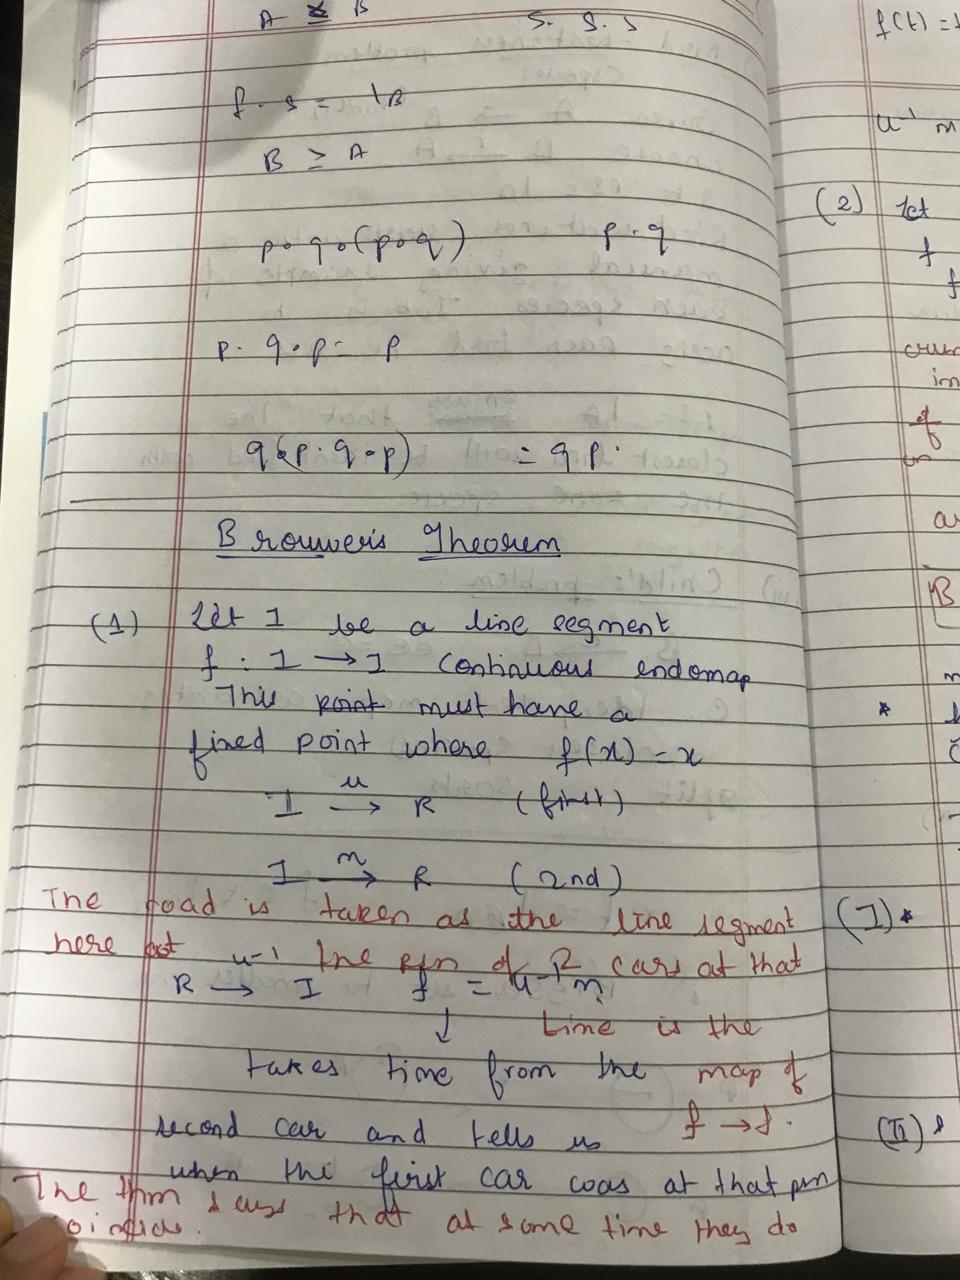 A ≤ B
S. S. S
f . s = 1B
B ≥ A
p∘q∘(p∘q) p.q
p. q∘p = p
q(p.q∘p) = q p.
Brouwer's Theorem
(1) Let I be a line segment
f : I → I continuous endomap
This point must have a
fixed point where f(x) = x
I u→ R (first)
I m→ R (2nd)
The road is taken as the line segment
here u⁻¹ the of 2 cars at that
R → I f = u⁻¹ m
↓ time is the
takes time from the map of
second car and tells us f → f.
when the first car was at that
The thm says that at some time they do
f(t) =
u⁻¹ m
(2) Let
f
f
im
of
on
B
*
(I) *
(II)